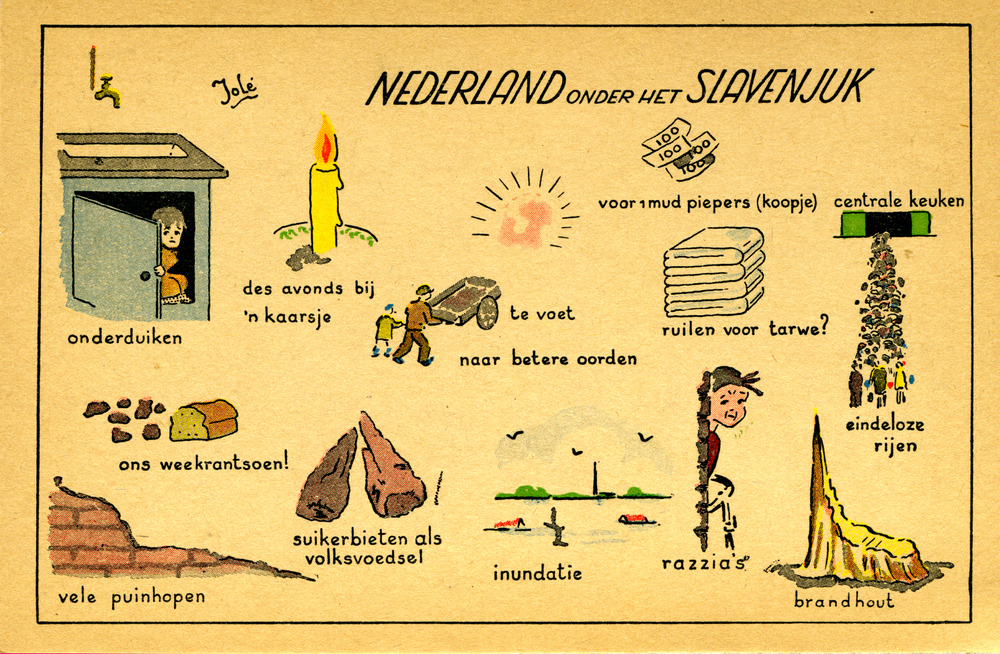 Jolé
NEDERLAND ONDER HET SLAVENJUK
100
100
100
100
voor 1 mud piepers (koopje)
centrale keuken
onderduiken
des avonds bij
'n kaarsje
te voet
naar betere oorden
ruilen voor tarwe?
eindeloze
rijen
ons weekrantsoen!
suikerbieten als
volksvoedsel
inundatie
razzia's
brandhout
vele puinhopen